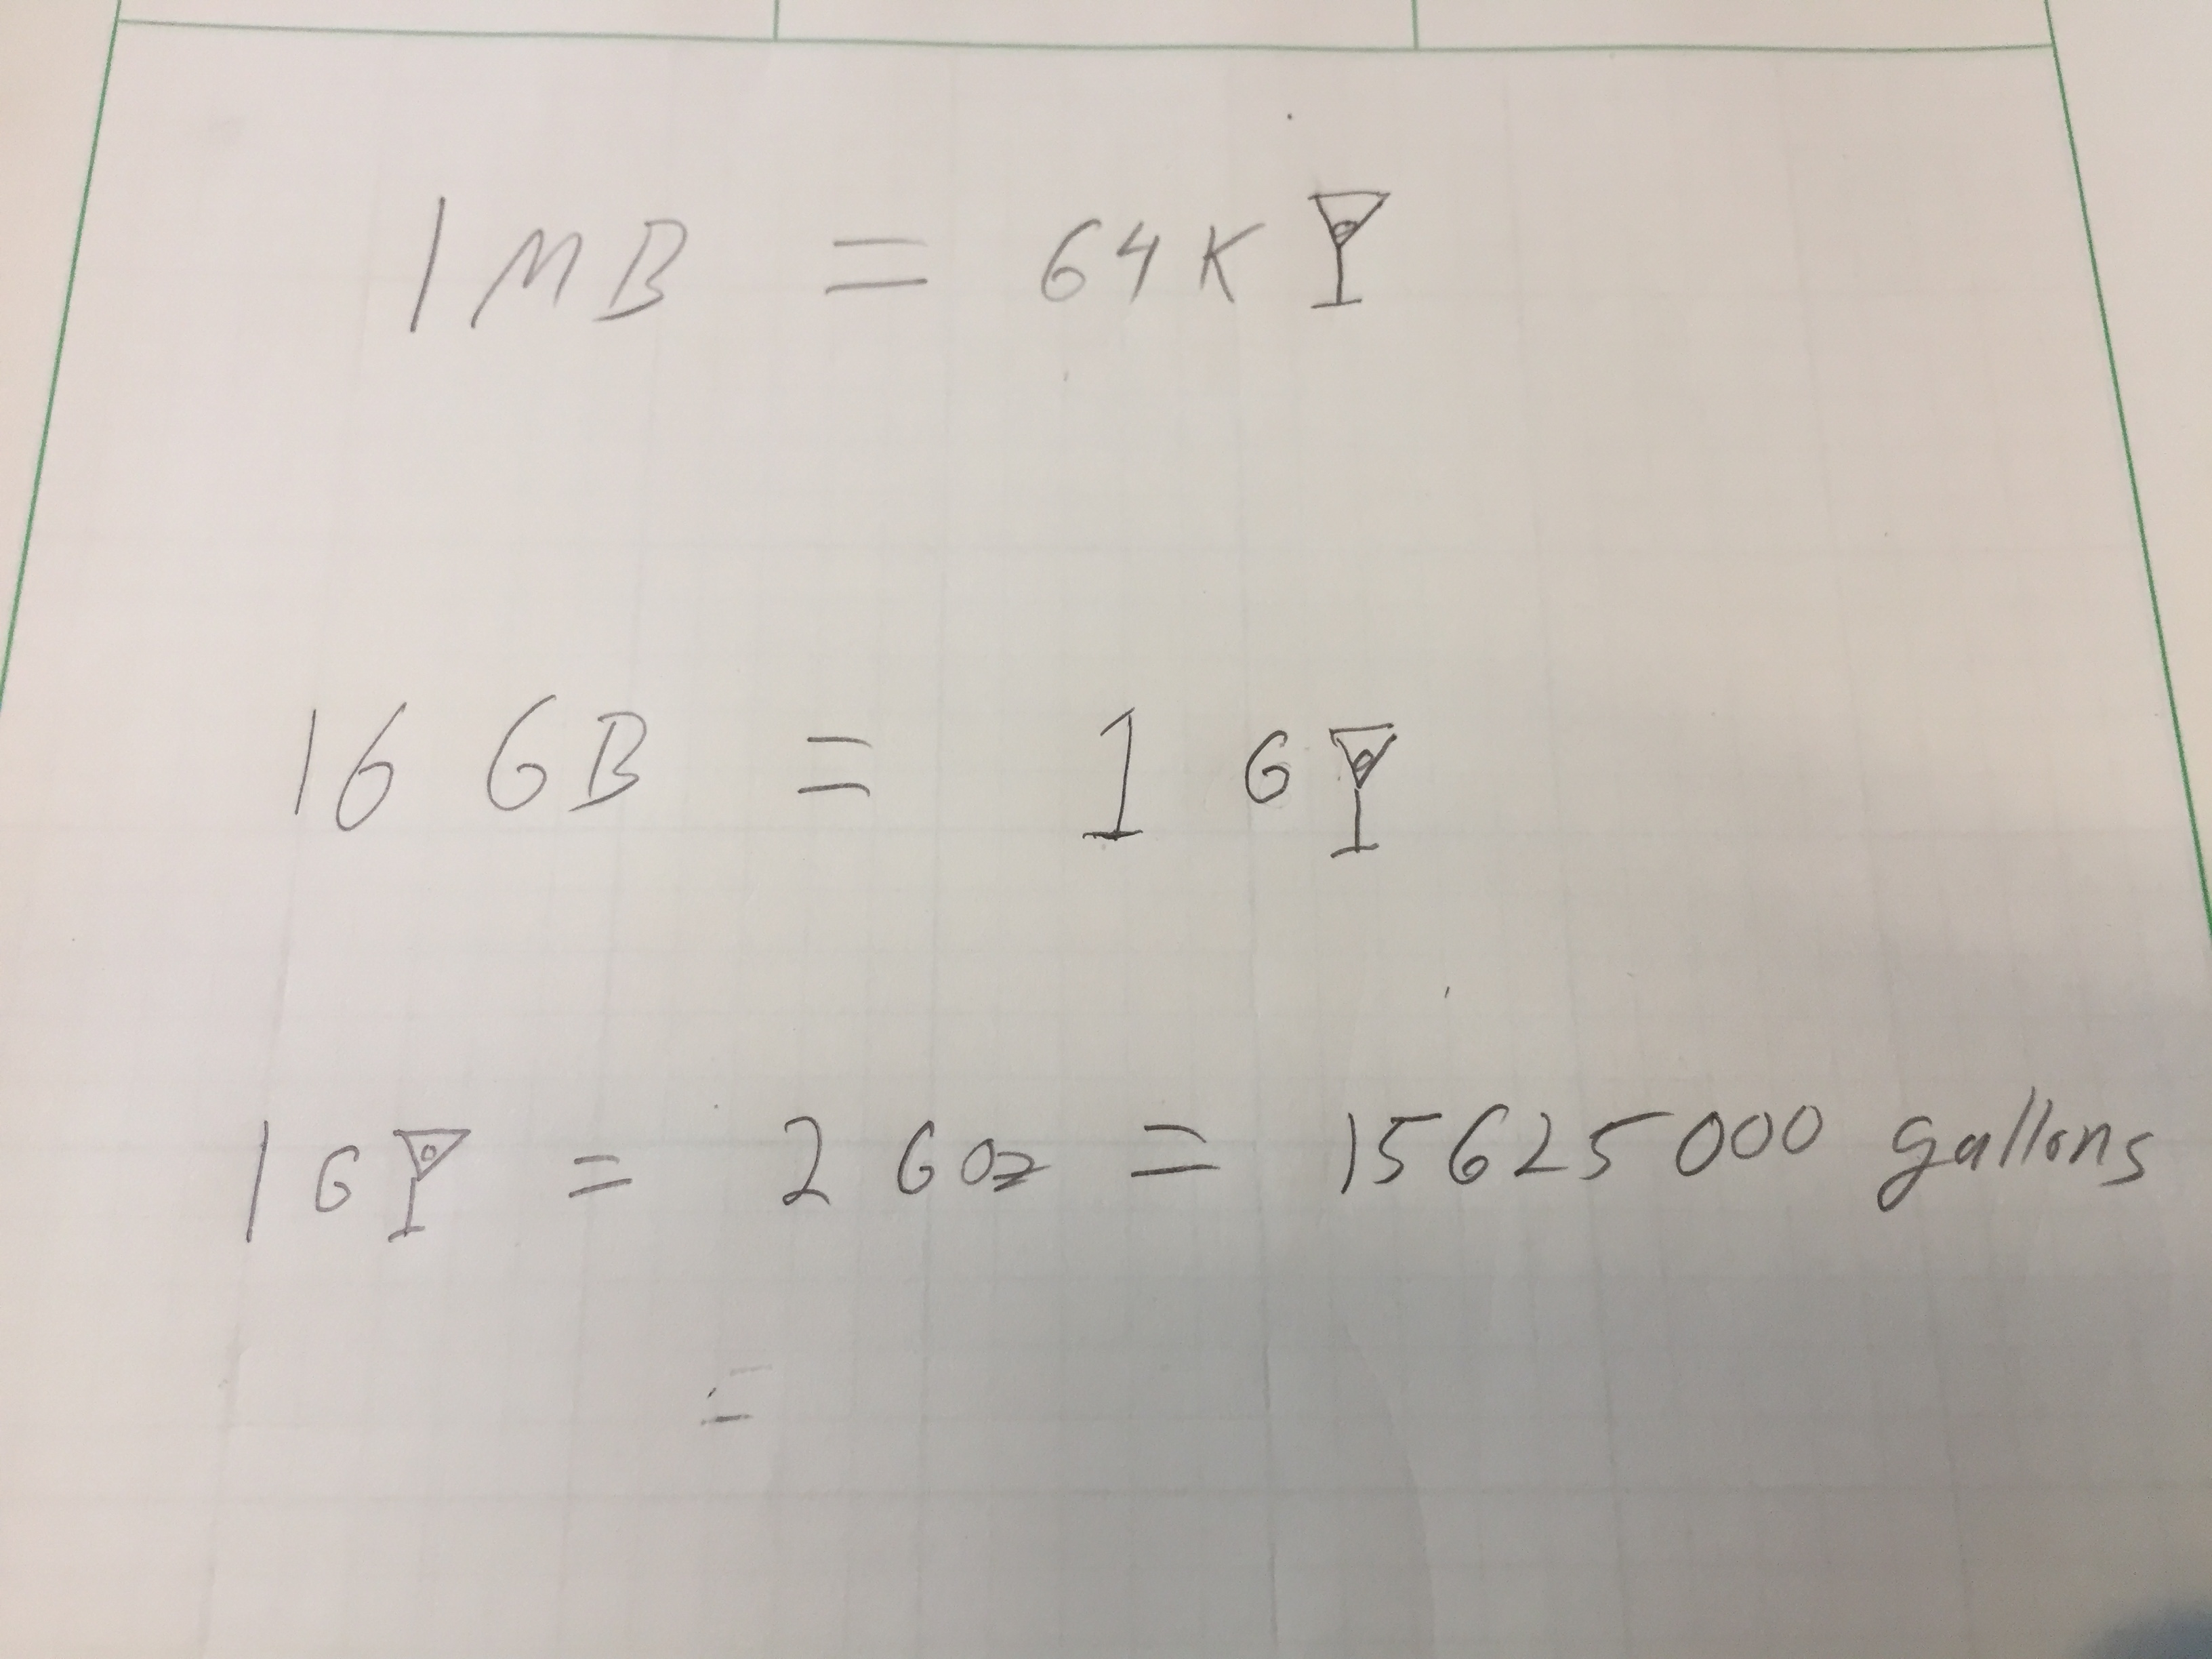 1 MB = 64K 🍸
16 GB = 1 G🍸
1 G🍸 = 2 Goz = 15625000 gallons
=